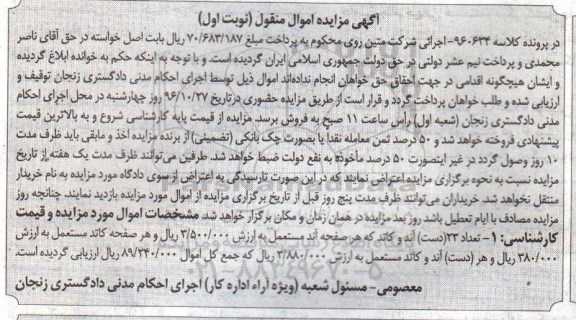 آگهی مزایده اموال منقول (نوبت اول)
در پرونده کلاسه ۹۶۰۶۳۴- اجرائی شرکت متین روی محکوم به پرداخت مبلغ ۷۰/۶۸۳/۱۸۷ ریال بابت اصل خواسته در حق آقای ناصر
محمدی و پرداخت نیم عشر دولتی در حق دولت جمهوری اسلامی ایران گردیده است. و با توجه به اینکه حکم به خوانده ابلاغ گردیده
و ایشان هیچگونه اقدامی در جهت احقاق حق خواهان انجام نداده‌اند اموال ذیل توسط اجرای احکام مدنی دادگستری زنجان توقیف و
ارزیابی شده و طلب خواهان پرداخت گردد و قرار است از طریق مزایده حضوری در تاریخ ۹۶/۱۰/۲۷ روز چهارشنبه در محل اجرای احکام
مدنی دادگستری زنجان (شعبه اول) رأس ساعت ۱۱ صبح به فروش برسد. مزایده از قیمت پایه کارشناسی شروع و به بالاترین قیمت
پیشنهادی فروخته خواهد شد و ۵۰ درصد ثمن معامله نقدا یا بصورت چک بانکی (تضمینی) از برنده مزایده اخذ و مابقی باید ظرف مدت
۱۰ روز وصول گردد در غیر اینصورت ۵۰ درصد مأخوذه به نفع دولت ضبط خواهد شد. طرفین می‌توانند ظرف مدت یک هفته از تاریخ
مزایده نسبت به نحوه برگزاری مزایده اعتراض نمایند که در این صورت تا رسیدگی به اعتراض از سوی دادگاه مورد مزایده به نام خریدار
منتقل نخواهد شد. خریداران می‌توانند ظرف مدت پنج روز قبل از تاریخ برگزاری مزایده از اموال مورد مزایده بازدید نمایند. چنانچه روز
مزایده مصادف با ایام تعطیل باشد روز بعد مزایده در همان زمان و مکان برگزار خواهد شد. مشخصات اموال مورد مزایده و قیمت
کارشناسی: ۱- تعداد ۲۳ (دست) آند و کاتد که هر صفحه آند مستعمل به ارزش ۳/۵۰۰/۰۰۰ ریال و هر صفحه کاتد مستعمل به ارزش
۳۸۰/۰۰۰ ریال و هر (دست) آند و کاتد مستعمل به ارزش ۳/۸۸۰/۰۰۰ ریال که جمع کل اموال ۸۹/۲۴۰/۰۰۰ ریال ارزیابی گردیده است.
معصومی- مسئول شعبه (ویژه آراء اداره کار) اجرای احکام مدنی دادگستری زنجان